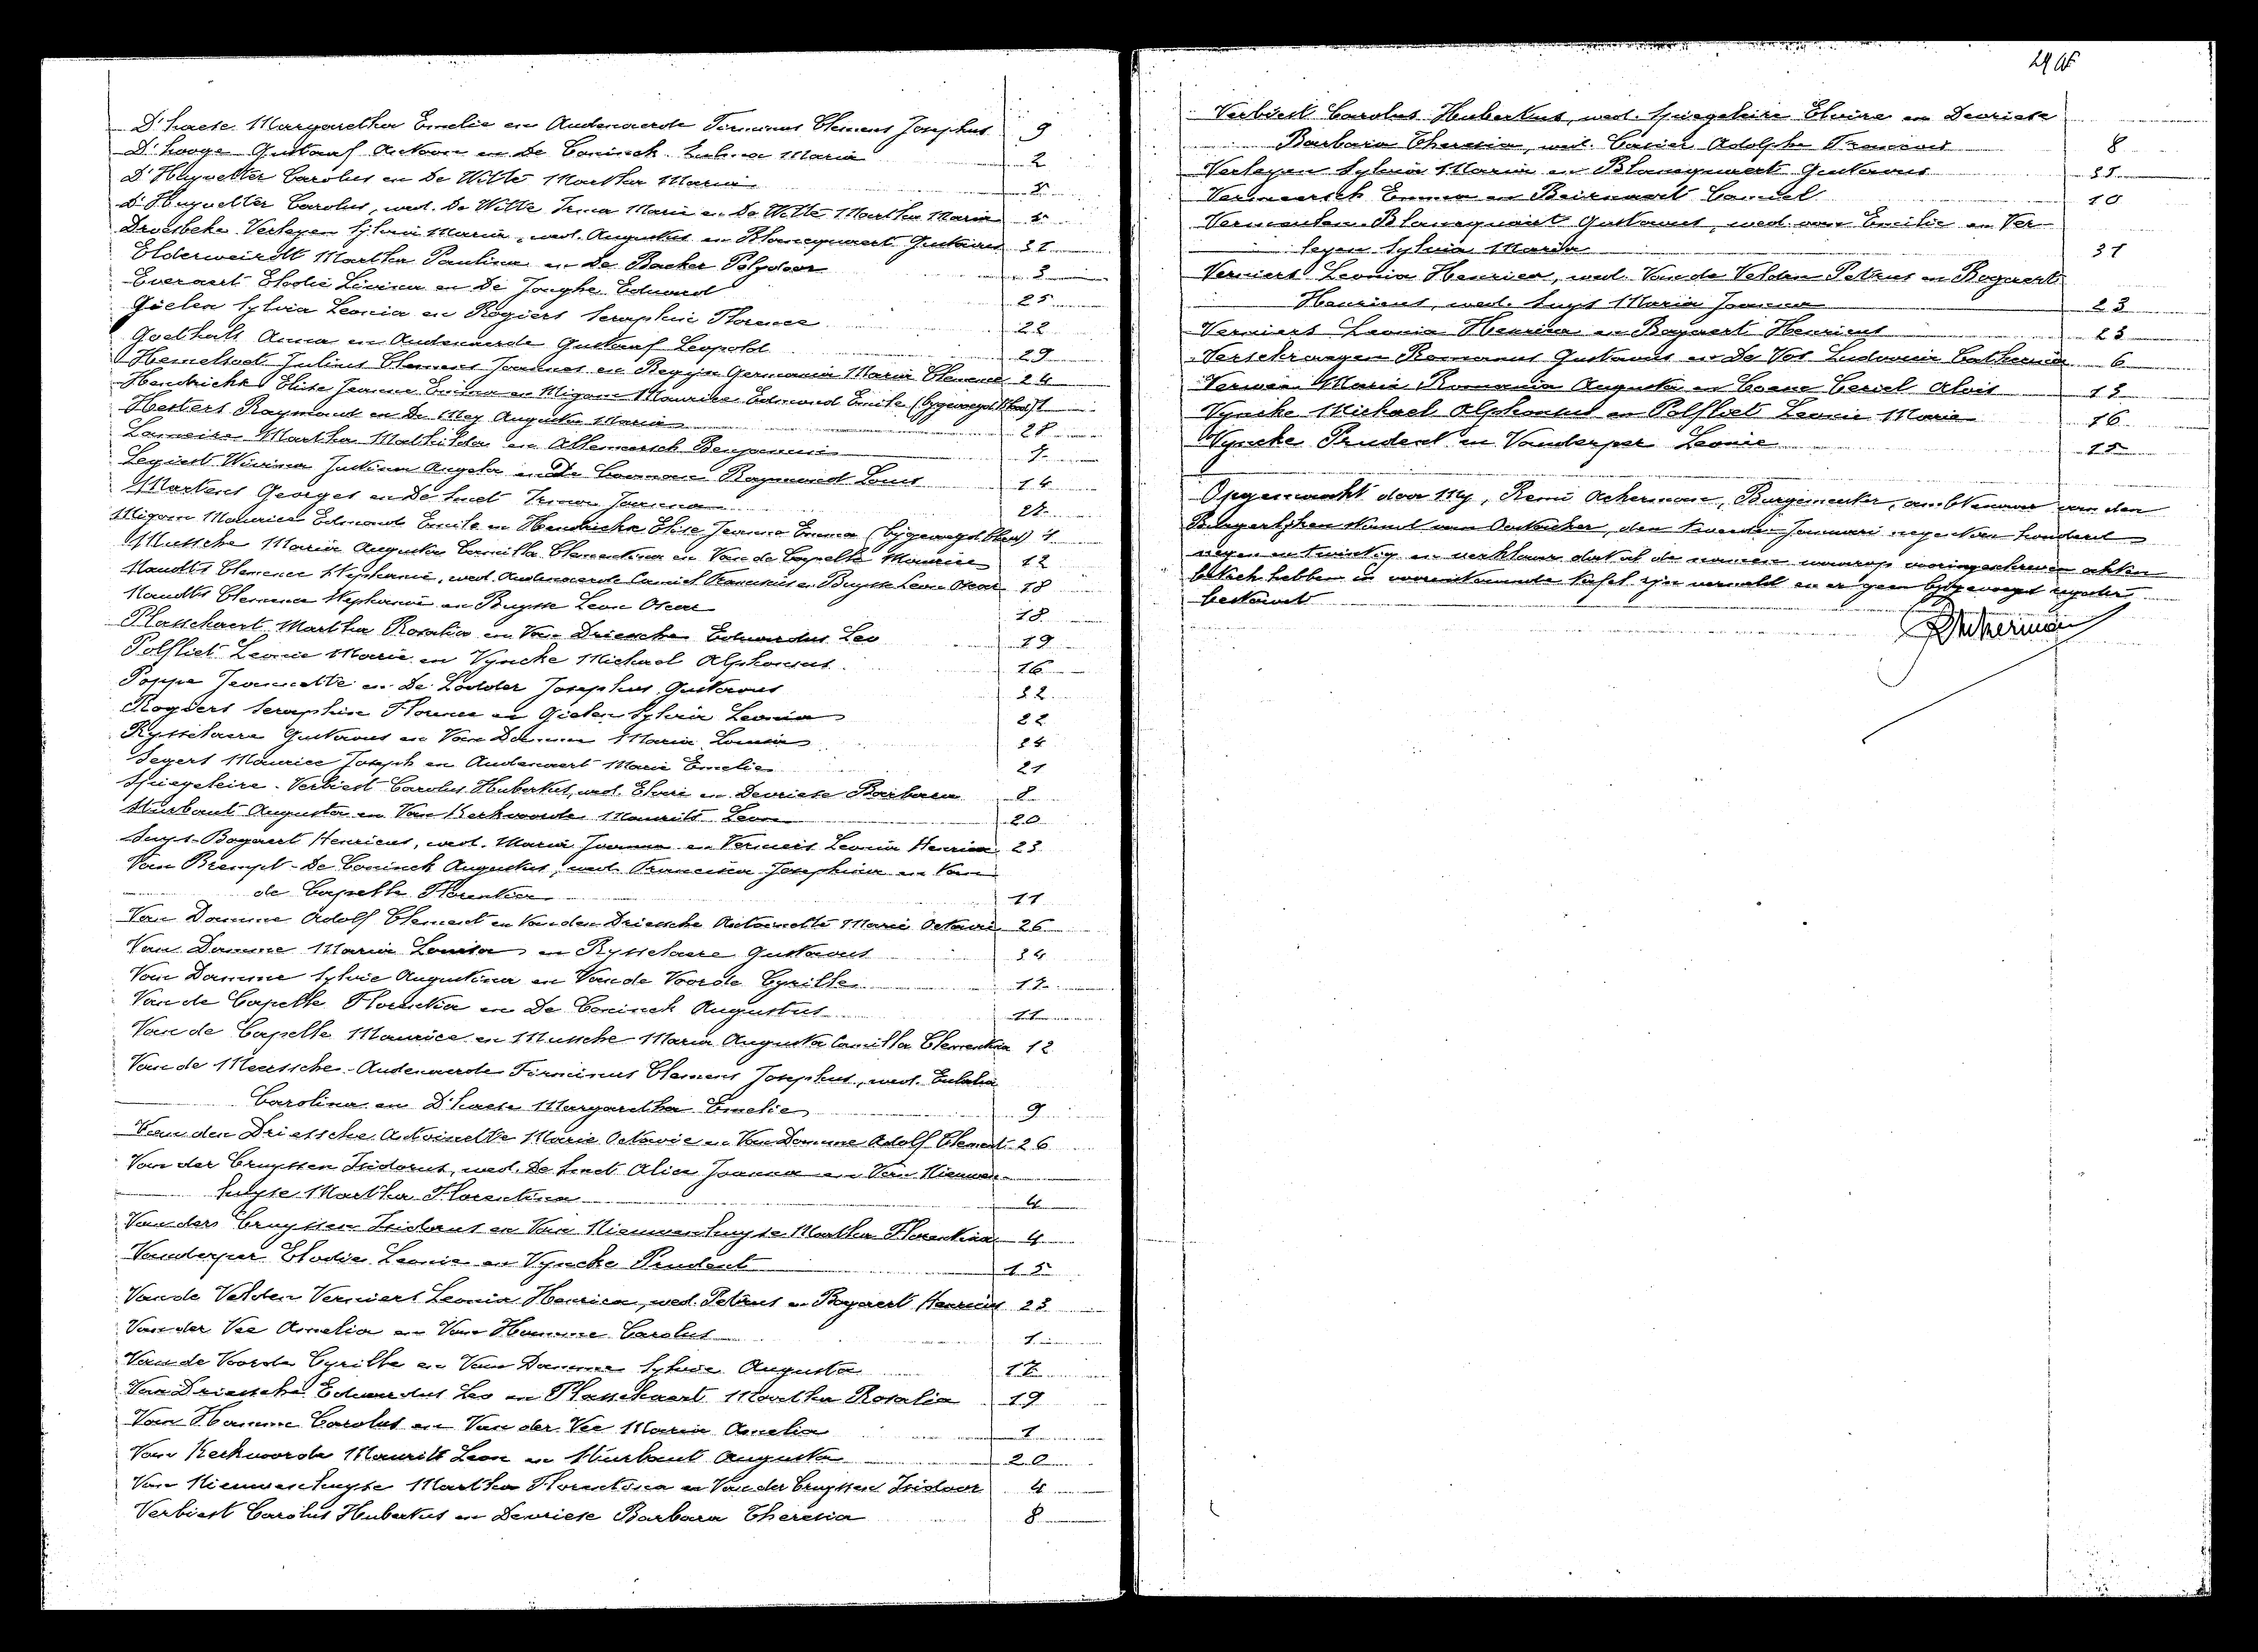 D'haese Margaretha Emelie en Audenaerde Firminus Clemens Josephus 9
D'hooge Gustaaf Antoon en De Coninck Maria 2
D'Huyvetter Carolus en De Witte Martha Maria 5
D'Huyvetter Carolus, wed. De Witte Irma Marie en De Witte Martha Maria 5
Droesbeke Verleyen Sylvia Maria, wed. Augustus en Blancquaert Gustavus 31
Elderweirdt Martha Paulina en De Backer Polydoor 3
Everaert Elodie Livina en De Jonghe Eduard 25
Gielen Sylvia Leonia en Rogiers Seraphin Florence 22
Goethals Anna en Audenaerde Gustaaf Leopold 29
Hemelsoet Julius Clemens Joannes en Begyn Germania Maria Clemence 24
Hendrickx Elise Jeanne Emma en Migom Maurice Edmond Emile (bygevoegd blad) 1
Hesters Raymond en De Mey Augusta Maria 28
Lameire Martha Mathilda en Allemeersch Benjamin 7
Legiest Wivina Justina Angela en De Cooman Raymond Louis 14
Martens Georges en De Smet Irma Joanna
Migom Maurice Edmond Emile en Hendrickx Elise Jeanne Emma (bygevoegd blad) 1
Mussche Maria Augusta Camilla Clementina en Van de Capelle Maurice 12
Naudts Clemence Stephanie, wed. Audenaerde Camiel Franciscus en Buysse Leon Oscar 18
Naudts Clemence Stephanie en Buysse Leon Oscar 18
Plasschaert Martha Rosalia en Van Driessche Eduardus Leo 19
Polfliet Leonie Marie en Vyncke Michael Alphonsus 16
Poppe Jeannette en De Lodder Josephus Gustavus 32
Rogiers Seraphin Florence en Gielen Sylvia Leonia 22
Rysselaere Gustavus en Van Damme Maria Louisa 34
Segers Maurice Joseph en Audenaert Marie Emelie 21
Spiegeleire-Verbiest Carolus Hubertus, wed. Elvire en Devriese Barbara 8
Sturbaut Augusta en Van Kerkvoorde Maurits Leon 20
Suys-Bogaert Henricus, wed. Maria Joanna en Verniers Leonia Henrica 23
Van Brempt-De Coninck Augustus, wed. Francisca Josephina en Van
de Capelle Florentia 11
Van Damme Adolf Clement en Van den Driessche Antoinette Marie Octavie 26
Van Damme Maria Louisa en Rysselaere Gustavus 34
Van Damme Sylvie Augustina en Van de Voorde Cyrille 17
Van de Capelle Florentia en De Coninck Augustus 11
Van de Capelle Maurice en Mussche Maria Augusta Camilla Clementina 12
Van de Meerssche-Audenaerde Firminus Clemens Josephus, wed. Eulalia
Carolina en D'haese Margaretha Emelie 9
Van den Driessche Antoinette Marie Octavie en Van Damme Adolf Clement 26
Van der Cruyssen Isidorus, wed. De Smet Alice Joanna en Van Nieuwen-
huyse Martha Florentina 4
Van der Cruyssen Isidorus en Van Nieuwenhuyse Martha Florentina 4
Vanderper Elodie Leonie en Vyncke Prudent 15
Van de Velden Verniers Leonia Henrica, wed. Petrus en Bogaert Henricus 23
Van der Vee Amelia en Van Hamme Carolus 1
Van de Voorde Cyrille en Van Damme Sylvie Augusta 17
Van Driessche Eduardus Leo en Plasschaert Martha Rosalia 19
Van Hamme Carolus en Van der Vee Maria Amelia 1
Van Kerkvoorde Maurits Leon en Sturbaut Augusta 20
Van Nieuwenhuyse Martha Florentina en Van der Cruyssen Isidoor 4
Verbiest Carolus Hubertus en Devriese Barbara Theresia 8
Verbiest Carolus Hubertus, wed. Spiegeleire Elvire en Devriese
Barbara Theresia, wed. Casier Adolphe Francois 8
Verleyen Sylvia Maria en Blancquaert Gustavus 31
Vermeersch Emma en Beirnaert Camiel 10
Vermeulen-Blancquaert Gustavus, wed. van Emilie en Ver-
leyen Sylvia Maria 31
Verniers Leonia Henrica, wed. Van de Velden Petrus en Bogaert
Henricus, wed. Suys Maria Joanna 23
Verniers Leonia Henrica en Bogaert Henricus 23
Verschraegen Romanus Gustavus en De Vos Ludovica Catharina 6
Verwee Marie Romania Augusta en Coene Ceriel Alois 13
Vyncke Michael Alphonsus en Polfliet Leonie Marie 16
Vyncke Prudent en Vanderper Leonie 15
Opgemaakt door My, Remi Ackerman, Burgemeester, ambtenaar van den
Burgerlyken stand van Oostacker, den tweeden Januari negentien honderd
negen en twintig en verklaar dat al de namen waarop voringeschreven akten
betrek hebben in voorenstaande tafel zyn vermeld en er geen bygevoegd register
bestaat
RAckerman